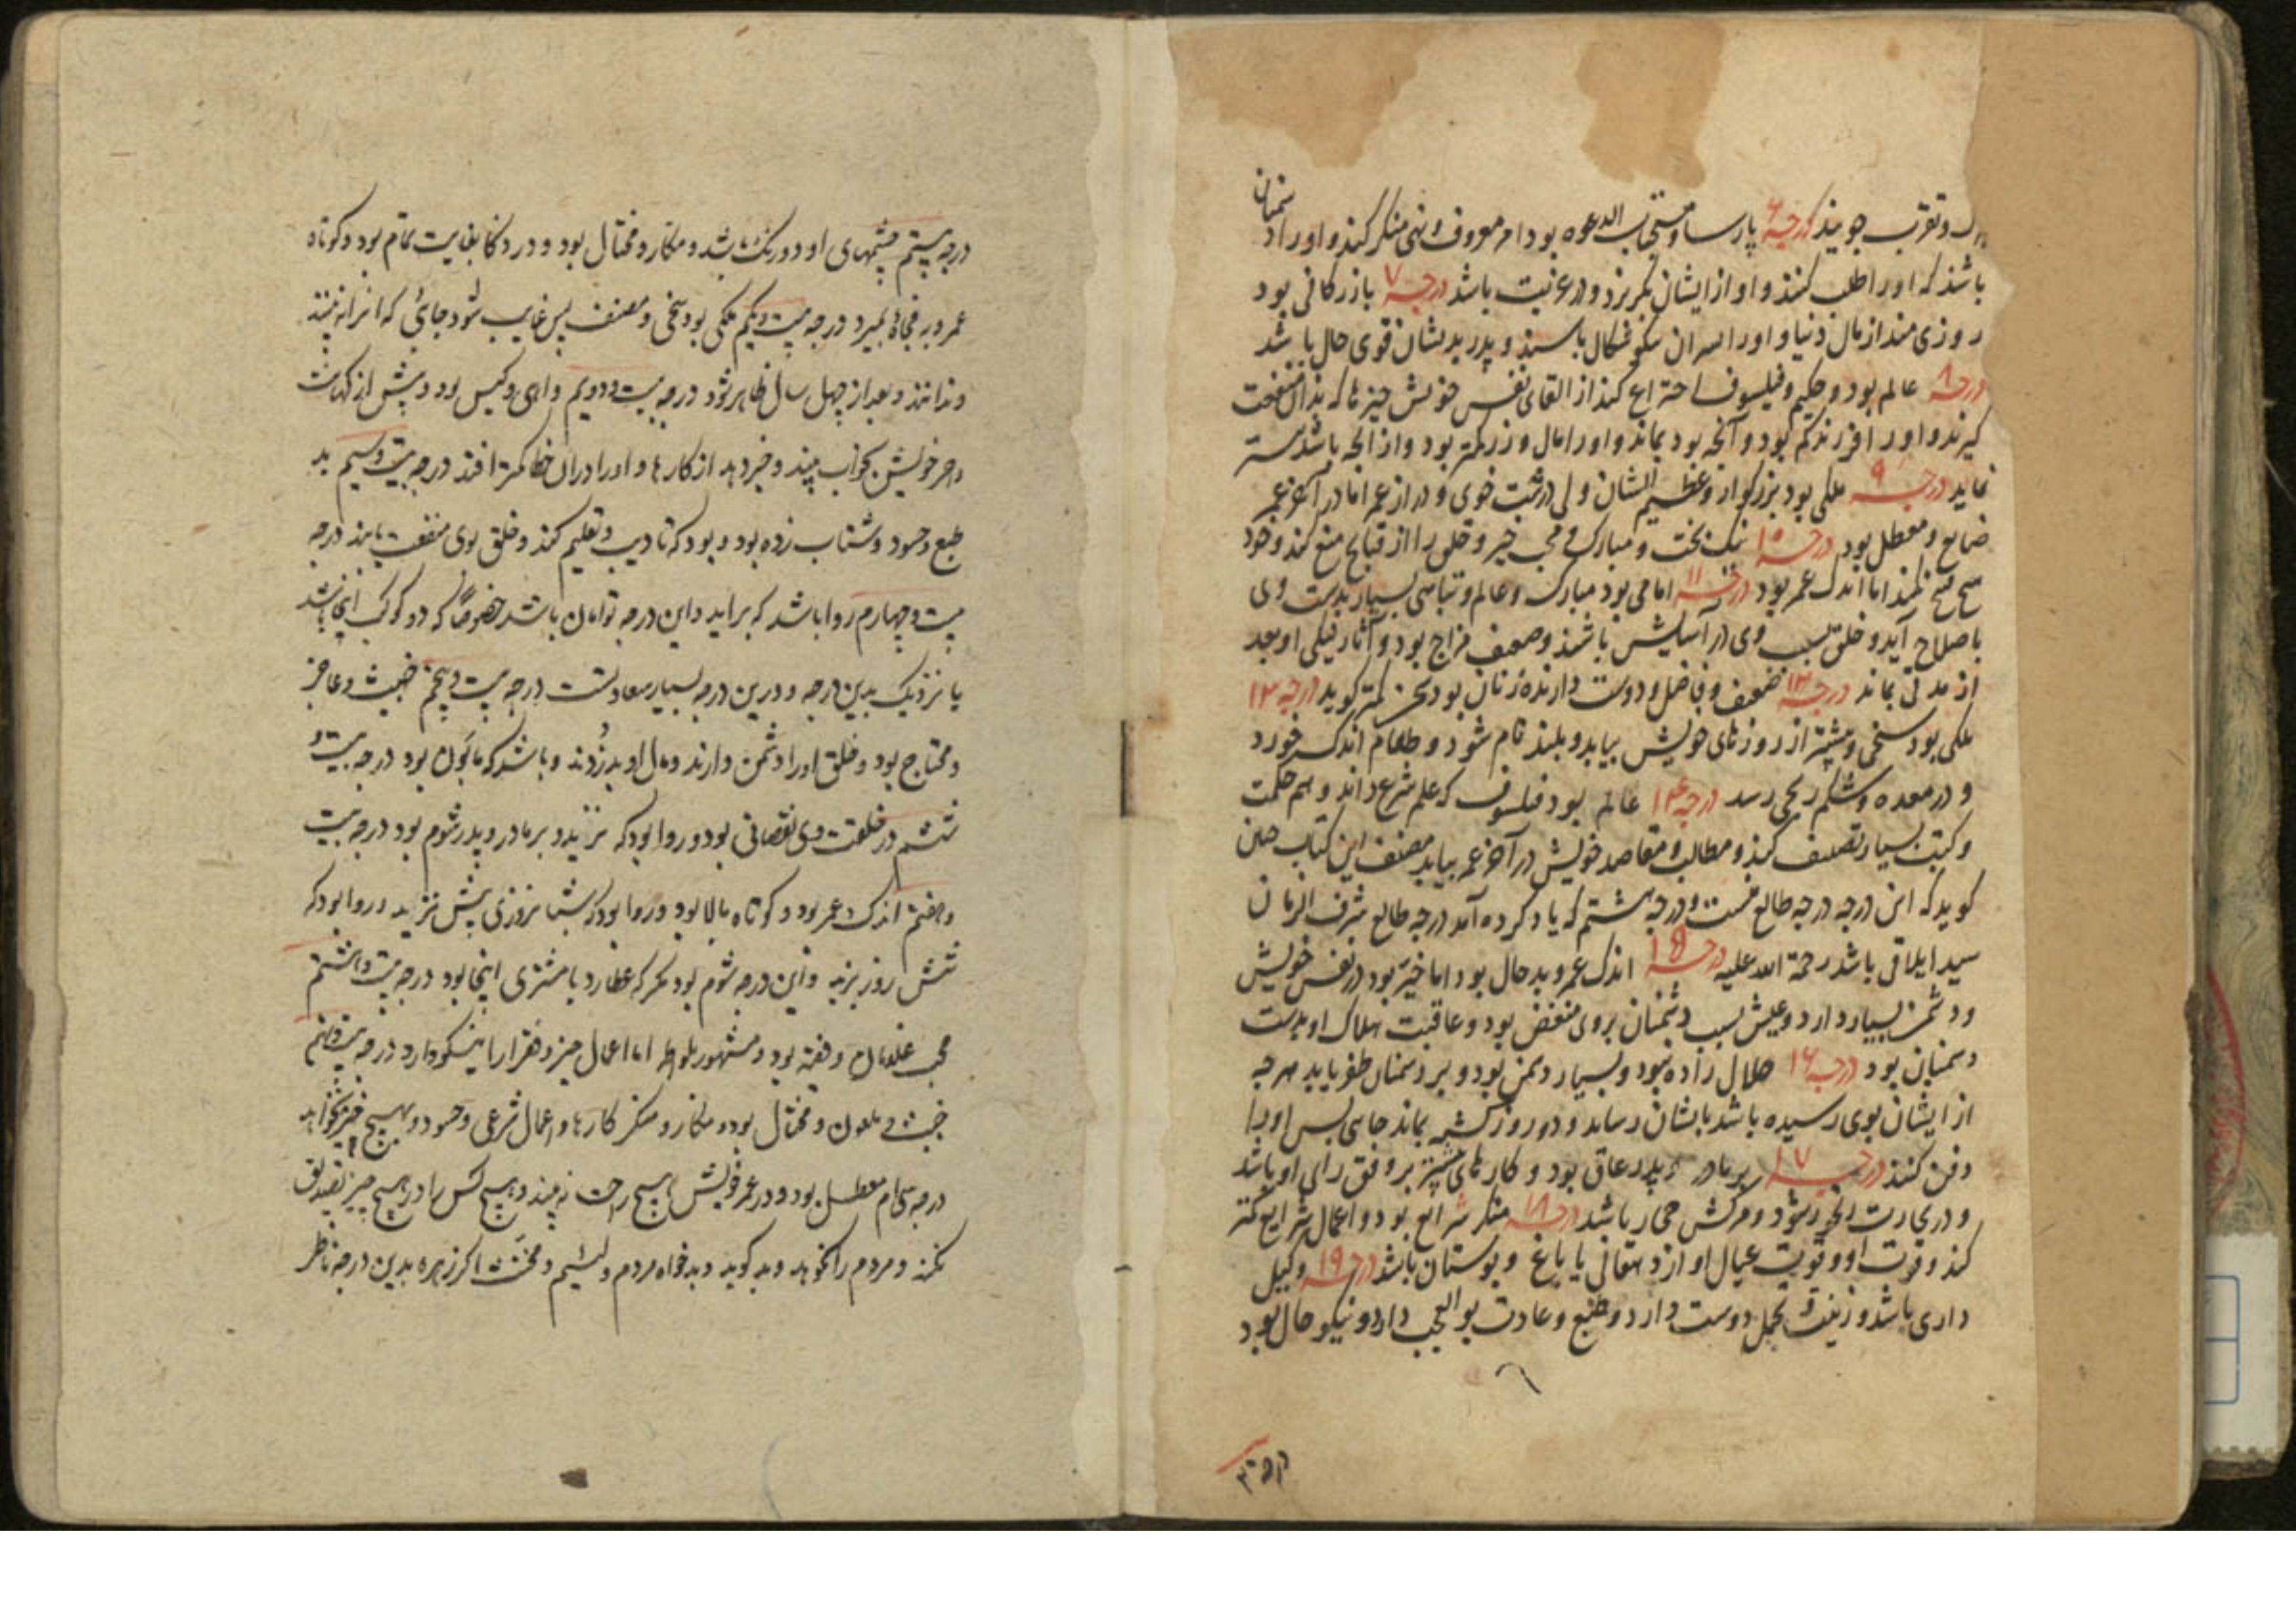 و تقرب جویند درجه ۶ پارسا و مستجاب الدعوه بود امر معروف و نهی منکر کند و او را دشمنان
باشند که او را طلب کنند و او از ایشان بگریزد و در غربت باشد درجه ۷ بازرگانی بود
روزی مند از مال دنیا و او را پسران نیکو باشند و پدر بدیشان قوی حال باشد
درجه ۸ عالم بود و حکیم و فیلسوف اختراع کند از القای نفس خویش چیزها که بدان منفعت
گیرند و او را فرزند کم بود و آنچه بود بماند و او را مال و زر کمتر بود و از آنچه باشد
نماید درجه ۹ ملکی بود بزرگوار و عظیم الشان ولی درشت خوی و دراز عمر اما در آخر عمر
ضایع و معطل بود درجه ۱۰ نیک بخت و مبارک و محب خیر و خلق را از قبایح منع کند و خود
هیچ قبیح نکند اما اندک عمر بود درجه ۱۱ امامی بود مبارک و عالم و تباهی بسیار بدست وی
باصلاح آید و خلق بسبب وی در آسایش باشند و ضعیف مزاج بود و آثار نیکی او بعد
از مدتی بماند درجه ۱۲ ضعیف و فاضل و دوست دارنده زنان بود سخن کمتر گوید درجه ۱۳
ملکی بود سخی و بیشتر از روزهای خویش بیابد و بلند نام شود و طعام اندک خورد
و در معده و شکم رنجی رسد درجه ۱۴ عالم بود فیلسوف که علم شرع داند و هم حکمت
و کتب بسیار تصنیف کند و مطالب و مقاصد خویش در آخر عمر بیابد مصنف این کتاب چنین
گوید که این درجه درجه طالع منست و درجه هشتم که یاد کرده آمد درجه طالع شرف الزمان
سید ایلاقی باشد رحمة الله علیه درجه ۱۵ اندک عمر و بد حال بود اما خیر بود در نفس خویش
و دشمن بسیار دارد و عیش بسبب دشمنان بر وی منغض بود و عاقبت هلاک او بدست
دشمنان بود درجه ۱۶ حلال زاده بود و بسیار دشمن بود و بر دشمنان ظفر یابد هرچه
از ایشان بوی رسیده باشد بایشان رساند و دو روز کشته بماند جایی پس او را
دفن کنند درجه ۱۷ بر مادر و پدر عاق بود و کارهای بیشتر بر وفق رای او باشد
و در تجارت شود و مرکبش حمار باشد درجه ۱۸ منکر شرایع بود و اعمال شرایع کمتر
کند و قوت او و قوت عیال او از دهقانی یا باغ و بوستان باشد درجه ۱۹ وکیل
داری باشد و زینت و تجمل دوست دارد و طبع و عادت بوالعجب دارد و نیکو حال بود
درجه بیستم چشمهای او دو رنگ باشد و مکار و محتال بود و در ذکا بغایت تمام بود و کوتاه
عمر و به فجاة بمیرد درجه بیست و یکم ملکی بود سخی و منصف پس غایب شود جائی که او را نه بینند
و ندانند و بعد از چهل سال ظاهر شود درجه بیست و دویم داهی و کیس بود و پیش از کهانت
خویش بخواب بیند و خبر دهد از کارها و او را در آن خطا کمتر افتد درجه بیست و سیم بد
طبع و حسود و شتاب زده بود و بود که تادیب و تعلیم کند و خلق بوی منفعت یابند درجه
بیست و چهارم روا باشد که برآید و این درجه توامان باشد خصوصا که دو کوکب اینجا باشد
یا نزدیک بدین درجه و درین درجه بسیار سعادتست درجه بیست و پنجم خبیث و عاجز
و محتاج بود و خلق او را دشمن دارند و مال او بدزدند و باشد که مابون بود درجه بیست و
ششم در خلقت وی نقصانی بود و روا بود که نزید و بر مادر و پدر شوم بود درجه بیست
و هفتم اندک عمر بود و کوتاه بالا بود و روا بود که شبانروزی بیش نزید و روا بود که
شش روز بزید و این درجه شوم بود مگر که عطارد با مشتری اینجا بود درجه بیست و هشتم
محب غلمان و فتنه بود و مشهور بلواطه اما اعمال خیر و هنر را نیکو دارد درجه بیست و نهم
خبیث و ملعون و محتال بود و مکار و منکر کارها و اعمال شرعی و حسود و بهیچ خیر نخواهد
درجه سی ام معطل بود و در عمر خویش هیچ راحت نه بیند و هیچ کس را در هیچ چیز تصدیق
نکند و مردم را نکوهد و بد گوید و بدخواه مردم و لئیم و مخنث اگر زهره بدین درجه ناظر
درجه ۲۰